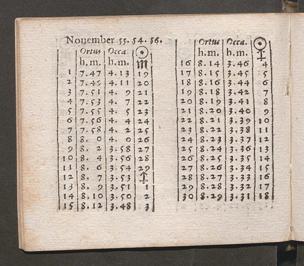 Nouember 55. 54. 56.
Ortus Occa. ☉
h. m. h. m. ♏
1 7.47 4.13 19
2 7.49 4.11 20
3 7.51 4. 9 21
4 7.53 4. 7 22
5 7.55 4. 5 23
6 7.56 4. 4 24
7 7.58 4. 2 25
8 8. 0 4. 0 26
9 8. 2 3.58 27
10 8. 4 3.56 28
11 8. 6 3.54 29
12 8. 7 3.53 ♐
13 8. 9 3.51 1
14 8.10 3.50 2
15 8.12 3.48 3
Ortus Occa. ☉
h. m. h. m. ♐
16 8.14 3.46 4
17 8.15 3.45 5
18 8.16 3.44 6
19 8.18 3.42 7
20 8.19 3.41 8
21 8.20 3.40 9
22 8.21 3.39 10
23 8.22 3.38 11
24 8.23 3.37 12
25 8.24 3.36 13
26 8.25 3.35 14
27 8.26 3.34 15
28 8.27 3.33 16
29 8.28 3.32 17
30 8.29 3.31 18